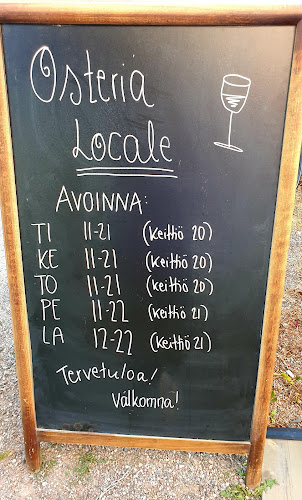 Osteria
Locale
AVOINNA:
TI 11-21 (Keittiö 20)
KE 11-21 (Keittiö 20)
TO 11-21 (Keittiö 20)
PE 11-22 (Keittiö 21)
LA 12-22 (Keittiö 21)
Tervetuloa!
Välkomna!